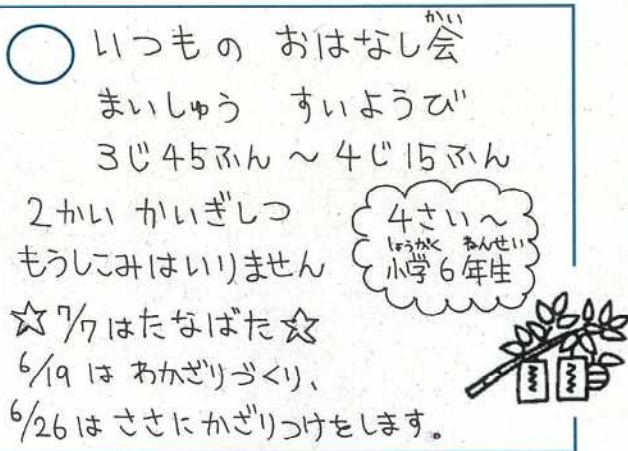 いつもの おはなし会
かい
まいしゅう すいようび
3じ45ふん ～ 4じ15ふん
2かい かいぎしつ
もうしこみはいりません
4さい～
しょうがく ねんせい
小学6年生
☆7/7はたなばた☆
6/19は わかざりづくり、
6/26はささにかざりつけをします。